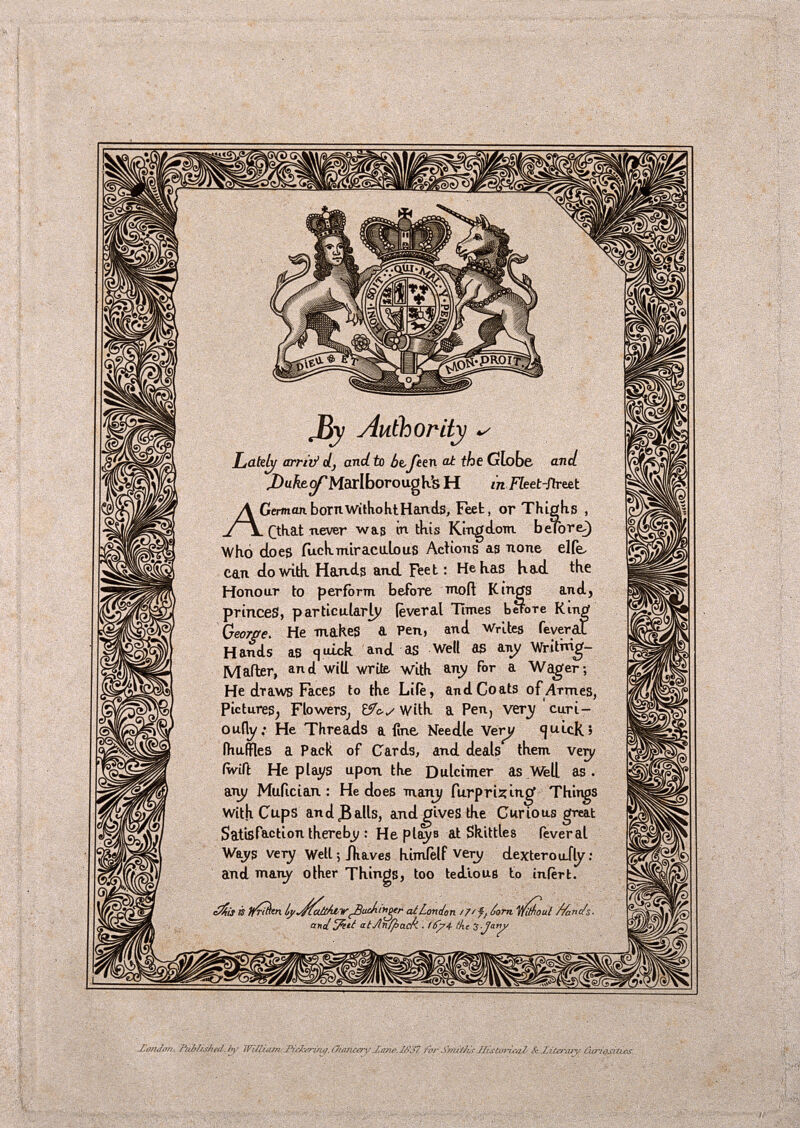 HONI · SOIT · QUI · MAL · Y · PENSE
DIEU ET MON · DROIT.
By Authority
Lately arriv'd, and to be ſeen at the Globe and
Duke of Marlborough's H in Fleet-ſtreet
A German born withoht Hands, Feet, or Thighs,
(that never was in this Kingdom before)
Who does ſuch miraculous Actions as none elſe
can do with Hands and Feet: He has had the
Honour to perform before moſt Kings and,
princes, particularly ſeveral Times before King
George. He makes a Pen, and writes ſeveral
Hands as quick and as well as any Writing-
Maſter, and will write with any for a Wager;
He draws Faces to the Life, and Coats of Armes,
Pictures, Flowers, &c. with a Pen, very curi-
ouſly: He Threads a fine Needle Very quick;
ſhuffles a Pack of Cards, and deals them very
ſwift He plays upon the Dulcimer as Well as.
any Muſician: He does many ſurprizing Things
with Cups and Balls, and gives the Curious great
Satisfaction thereby: He plays at Skittles ſeveral
Ways very Well; ſhaves himſelf very dexterouſly:
and many other Things, too tedious to inſert.
This is Written by Matthew Buchinger at London born Without Hands.
and Feet at Anſpack. 1674 the 3. Jany
London. Published, by William Pickering, Chancery Lane, 1837 for Smith's Historical & Literary Curiosities.